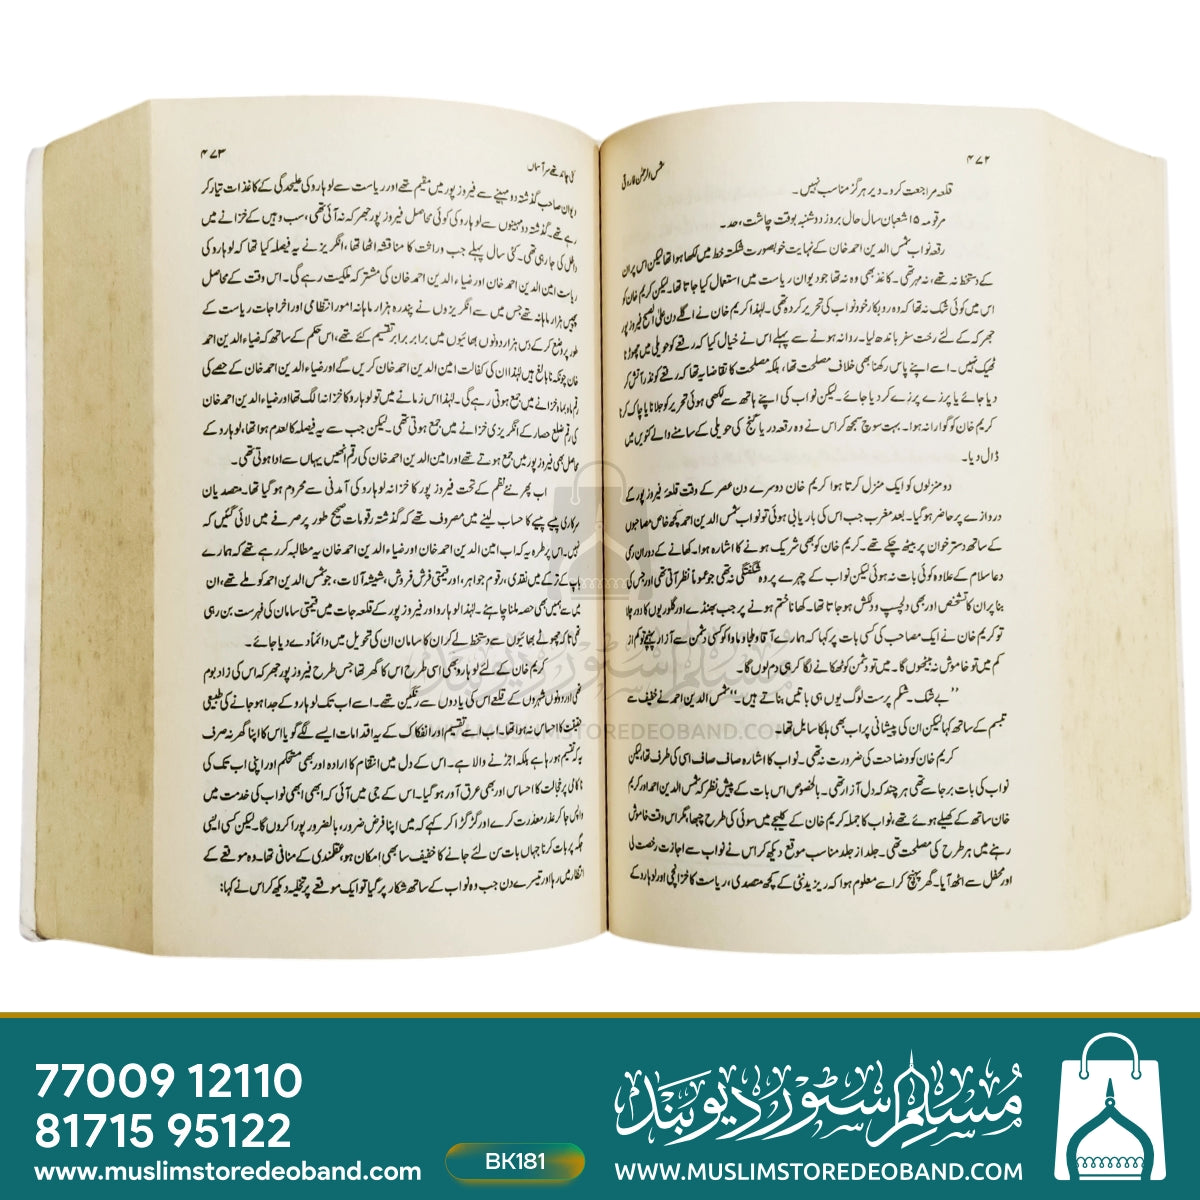 ۴۷۲
شمس الرحمٰن فاروقی
قلعہ مراجعت کرد۔ دیر ہرگز مناسب نہیں۔
مرقومہ ۱۵ شعبان سال حال بروز دوشنبہ بوقت چاشت، حد۔
رقعہ نواب شمس الدین احمد خان کے نہایت خوبصورت شکستہ خط میں لکھا ہوا تھا لیکن اس پر ان
کے دستخط نہ تھے، نہ مہر تھی۔ کاغذ بھی وہ نہ تھا جو دیوان ریاست میں استعمال کیا جاتا تھا۔ لیکن کریم خان کو
اس میں کوئی شک نہ تھا کہ وہ روبکار خود نواب کی تحریر کردہ تھی۔ لہٰذا کریم خان نے اگلے دن علی الصبح فیروز پور
جھرکہ کے لئے رخت سفر باندھ لیا۔ روانہ ہونے سے پہلے اس نے خیال کیا کہ رقعے کو حویلی میں چھوڑنا
ٹھیک نہیں۔ اسے اپنے پاس رکھنا بھی خلاف مصلحت تھا، بلکہ مصلحت کا تقاضا یہ تھا کہ رقعے کو نذر آتش کر
دیا جائے یا پرزے پرزے کر دیا جائے۔ لیکن نواب کی اپنے ہاتھ سے لکھی ہوئی تحریر کو جلانا یا چاک کرنا
کریم خان کو گوارا نہ ہوا۔ بہت سوچ سمجھ کر اس نے وہ رقعہ دریا گنج کی حویلی کے سامنے والے کنویں میں
ڈال دیا۔
دو منزلوں کو ایک منزل کرتا ہوا کریم خان دوسرے دن عصر کے وقت قلعۂ فیروز پور کے
دروازے پر حاضر ہو گیا۔ بعد مغرب جب اس کی باریابی ہوئی تو نواب شمس الدین احمد کچھ خاص مصاحبوں
کے ساتھ دسترخوان پر بیٹھ چکے تھے۔ کریم خان کو بھی شریک ہونے کا اشارہ ہوا۔ کھانے کے دوران رسمی
دعا سلام کے علاوہ کوئی بات نہ ہوئی لیکن نواب کے چہرے پر وہ شگفتگی نہ تھی جو عموماً نظر آتی تھی اور جس کی
بنا پر ان کا تشخص اور بھی دلچسپ و دلکش ہو جاتا تھا۔ کھانا ختم ہونے پر جب بھنڈے اور گلوریوں کا دور چلا
تو کریم خان نے ایک مصاحب کی کسی بات پر کہا کہ ہمارے آقا و ملجا و ماوا کو کسی دشمن سے آزار پہنچے تو کم از
کم میں تو خاموش نہ بیٹھوں گا۔ میں تو دشمن کو ٹھکانے لگا کر ہی دم لوں گا۔
"بے شک۔ شکم پرست لوگ یوں ہی باتیں بناتے ہیں۔" شمس الدین احمد نے خفیف سے
تبسم کے ساتھ کہا لیکن ان کی پیشانی پر اب بھی ہلکا سا بل تھا۔
کریم خان کو وضاحت کی ضرورت نہ تھی۔ نواب کا اشارہ صاف صاف اسی کی طرف تھا، لیکن
نواب کی بات بر جا سے تھی ہر چند کہ دل آزار تھی۔ بالخصوص اس بات کے پیش نظر کہ شمس الدین احمد اور کریم
خان ساتھ کے کھیلے ہوئے تھے، نواب کا جملہ کریم خان کے کلیجے میں سوئی کی طرح چبھا، مگر اس وقت خاموش
رہنے میں ہر طرح کی مصلحت تھی۔ جلد از جلد مناسب موقع دیکھ کر اس نے نواب سے اجازت رخصت لی
اور محفل سے اٹھ آیا۔ گھر پہنچ کر اسے معلوم ہوا کہ ریزیڈنٹی کے کچھ متصدی، ریاست کا خزانچی اور لوہارو کے
۴۷۳
کئی چاند تھے سر آسماں
دیوان صاحب گذشتہ دو مہینے سے فیروز پور میں مقیم تھے اور ریاست سے لوہارو کی علیحدگی کے کاغذات تیار کر
رہے تھے۔ گذشتہ دو مہینوں سے لوہارو کی کوئی محاصل فیروز پور جھرکہ نہ آئی تھی، سب وہیں کے خزانے میں
داخل کی جا رہی تھی۔ کئی سال پہلے جب وراثت کا مناقشہ اٹھا تھا، انگریز نے یہ فیصلہ کیا تھا کہ لوہارو کی
ریاست امین الدین احمد خان اور ضیاء الدین احمد خان کی مشترکہ ملکیت رہے گی۔ اس وقت کے محاصل
پچیس ہزار ماہانہ تھے جس میں سے انگریزوں نے پندرہ ہزار ماہانہ امور انتظامی اور اخراجات ریاست کے
طور پر وضع کر کے دس ہزار دونوں بھائیوں میں برابر برابر تقسیم کئے تھے، اس حکم کے ساتھ کہ ضیاء الدین احمد
خان چونکہ نابالغ ہیں لہٰذا ان کی کفالت امین الدین احمد خان کریں گے اور ضیاء الدین احمد خان کے حصے کی
رقم ماہ بماہ خزانے میں جمع ہوتی رہے گی۔ لہٰذا اس زمانے میں تو لوہارو کا خزانہ الگ تھا اور ضیاء الدین احمد خان
کی رقم ضلع حصار کے انگریزی خزانے میں جمع ہوتی تھی۔ لیکن جب سے یہ فیصلہ کالعدم ہوا تھا، لوہارو کے
محاصل بھی فیروز پور میں جمع ہوتے تھے اور امین الدین احمد خان کی رقم انھیں یہاں سے ادا ہوتی تھی۔
اب پھر نئے نظم کے تحت فیروز پور کا خزانہ لوہارو کی آمدنی سے محروم ہو گیا تھا۔ متصدیان
سرکاری پیسے پیسے کا حساب لینے میں مصروف تھے کہ گذشتہ رقومات صحیح طور پر صرفے میں لائی گئیں کہ
نہیں۔ اس پر طرہ یہ کہ اب امین الدین احمد خان اور ضیاء الدین احمد خان یہ مطالبہ کر رہے تھے کہ ہمارے
باپ کے ترکے میں نقدی، رقوم جواہر، اور قیمتی فرش فروش، شیشہ آلات، جو شمس الدین احمد کو ملے تھے، ان
میں سے ہمیں بھی حصہ ملنا چاہئے۔ لہٰذا لوہارو اور فیروز پور کے قلعہ جات میں قیمتی سامان کی فہرست بن رہی
تھی تاکہ چھوٹے بھائیوں سے دستخط لے کر ان کا سامان ان کی تحویل میں دائماً دے دیا جائے۔
کریم خان کے لئے لوہارو بھی اسی طرح اس کا گھر تھا جس طرح فیروز پور جھرکہ اس کی زاد بوم
تھی اور دونوں شہروں کے قلعے اس کی یادوں سے رنگین تھے۔ اسے اب تک لوہارو کے جدا ہو جانے کی طبیعی
کیفیت کا احساس نہ ہوا تھا۔ اب اسے تقسیم اور انفکاک کے یہ اقدامات ایسے لگے گویا اس کا اپنا گھر نہ صرف
یہ کہ تقسیم ہو رہا ہے بلکہ اجڑنے والا ہے۔ اس کے دل میں انتقام کا ارادہ اور بھی مستحکم اور اپنی اب تک کی
ناکامی پر خجالت کا احساس اور بھی عرق آور ہو گیا۔ اس کے جی میں آئی کہ ابھی ابھی نواب کی خدمت میں
واپس جا کر عذر معذرت کرے اور گڑگڑا کر کہے کہ میں اپنا فرض ضرور، بالضرور پورا کروں گا۔ لیکن کسی ایسی
جگہ پر بات کرنا جہاں بات سن لئے جانے کا خفیف سا بھی امکان ہو، عقلمندی کے منافی تھا۔ وہ موقعے کے
انتظار میں رہا اور تیسرے دن جب وہ نواب کے ساتھ شکار پر گیا تو ایک موقعے پر تخلیہ دیکھ کر اس نے کہا:
مسلم سٹور دیوبند
WWW.MUSLIMSTOREDEOBAND.COM
77009 12110
81715 95122
www.muslimstoredeoband.com
BK181
مسلم سٹور دیوبند
WWW.MUSLIMSTOREDEOBAND.COM